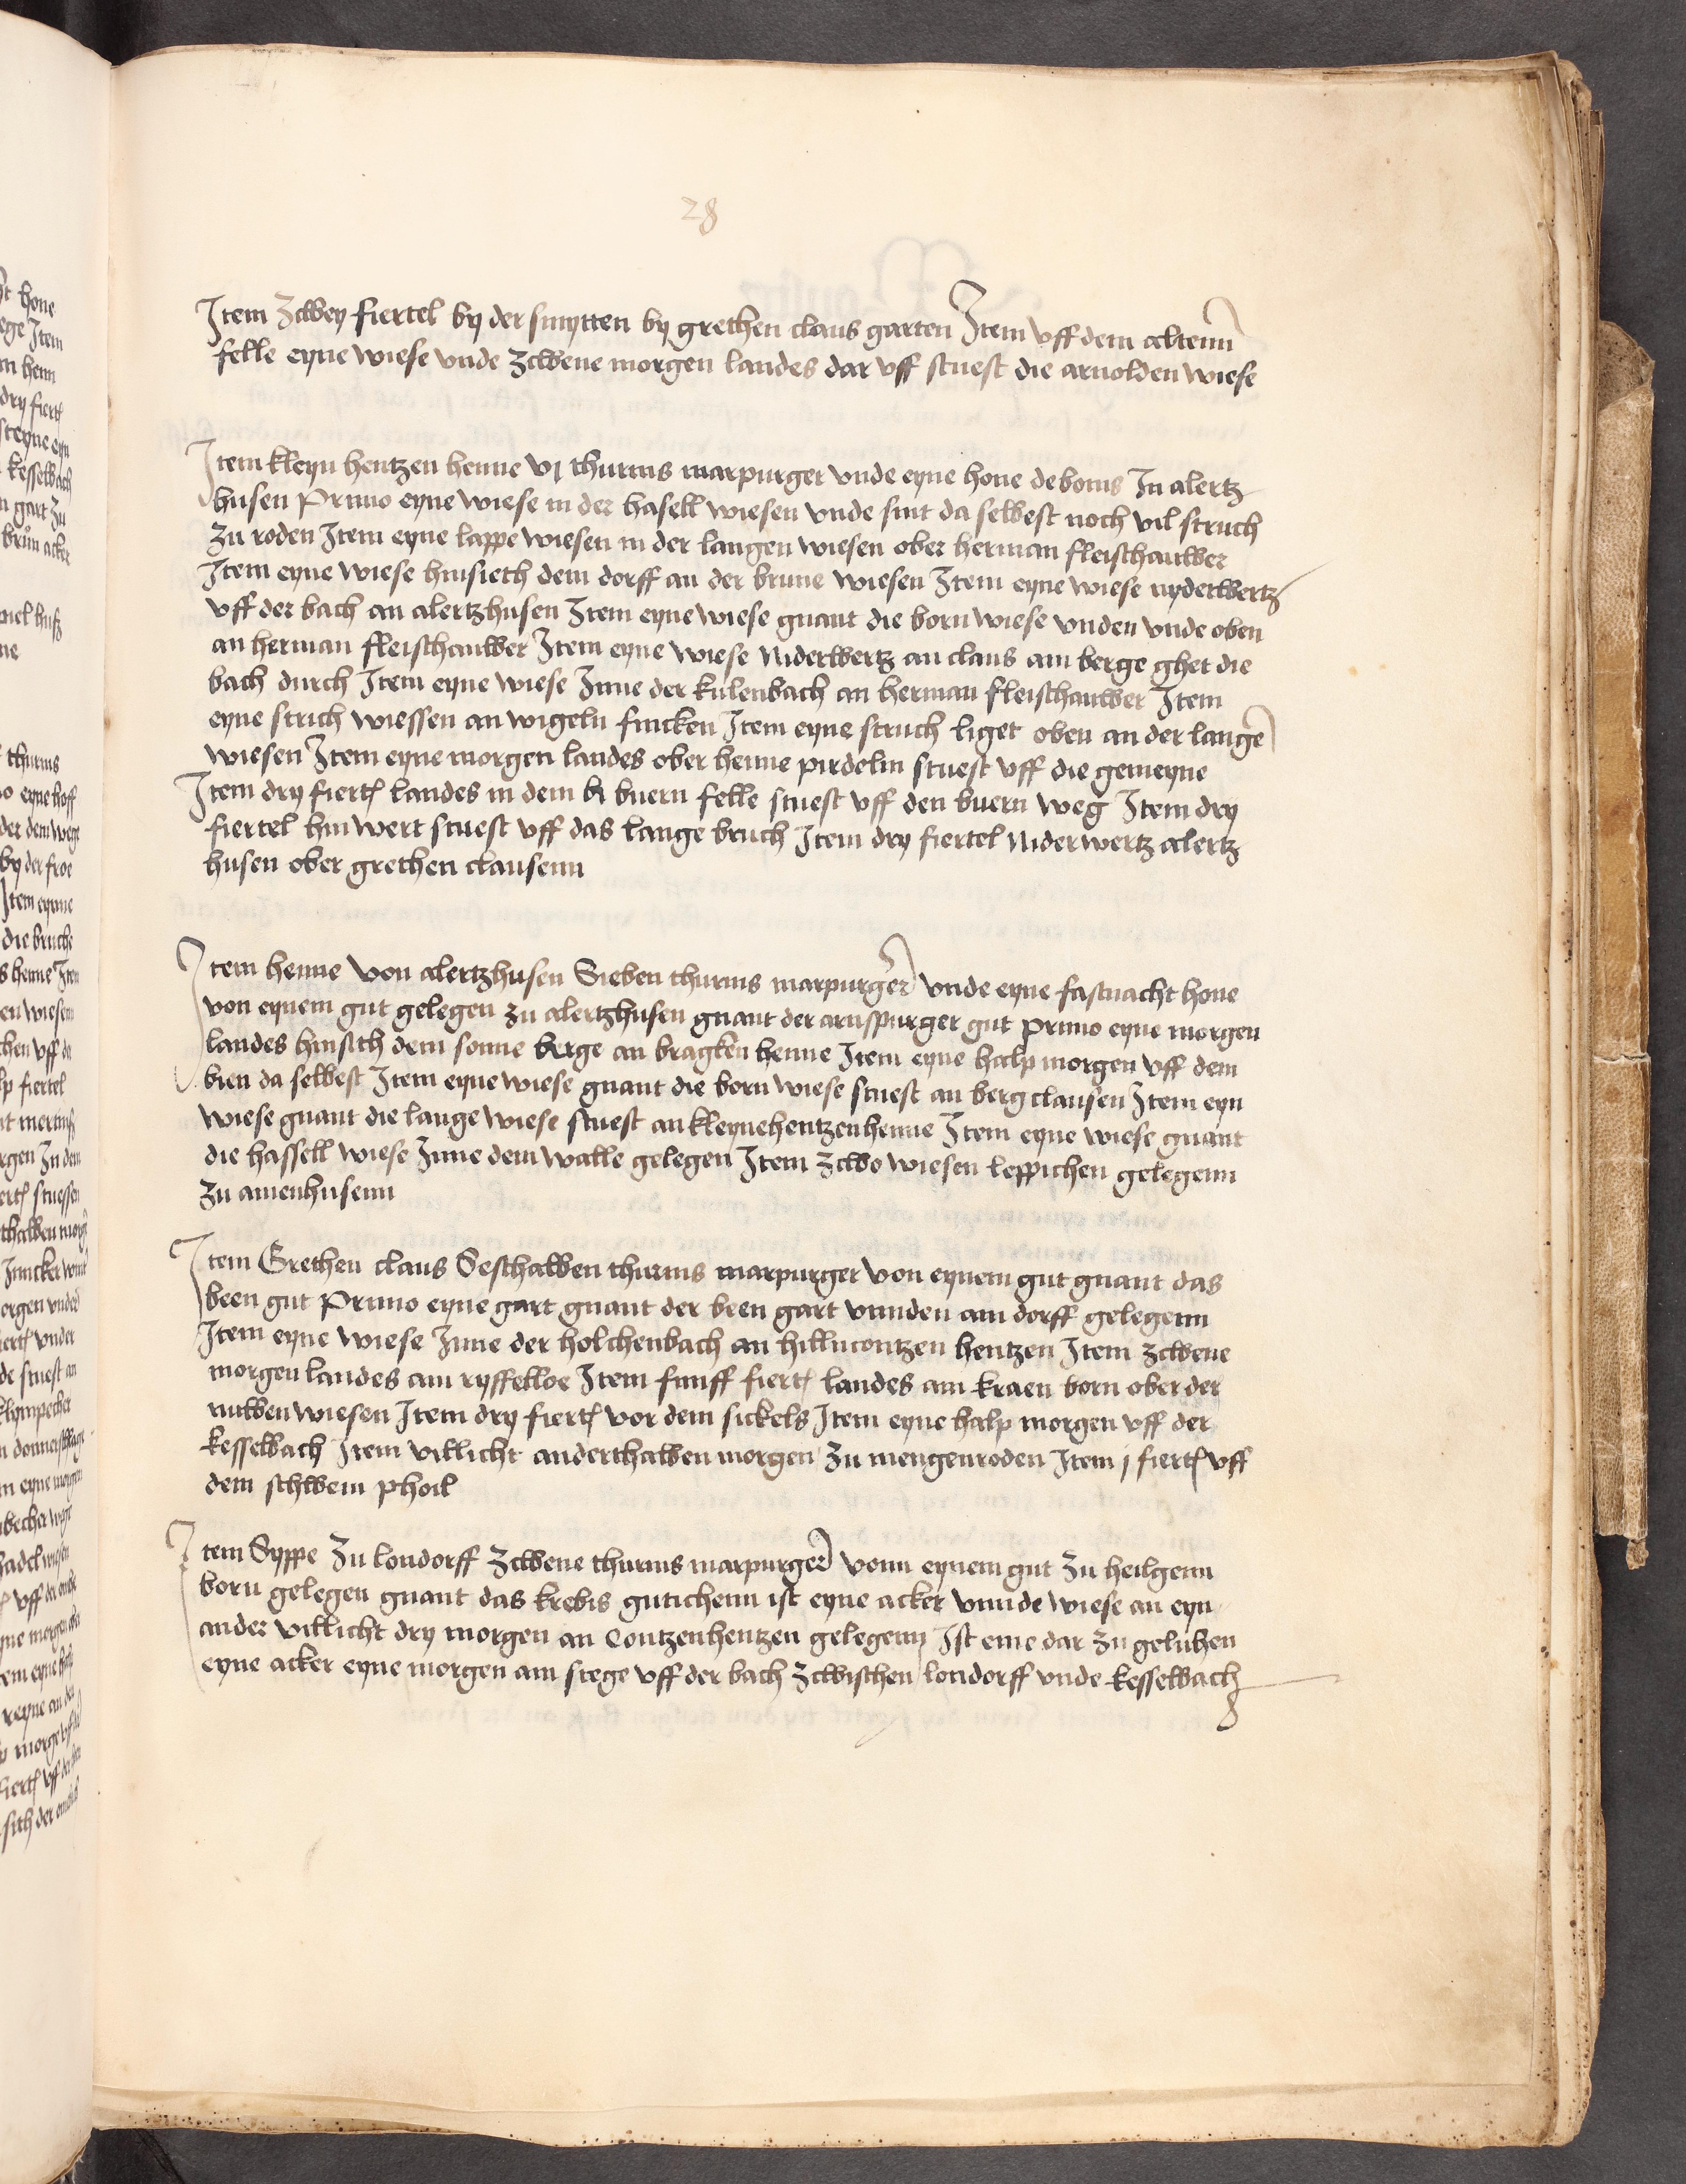 28
Item zcwey fiertel by der smytten by grethen claus garten Item vff dem altenn
felle eyne wiese vnde zcwene morgen landes dar vff stuest die arnolden wiese
Item kleyn hentzen henne vj thurnis marpurger vnde eyne hone de bonis In alertz
husen Primo eyne wiese in der hasell wiesen vnde sint da selbest noch vil struch
zu roden Item eyne lappe wiesen in der langen wiesen ober herman fleischauwer
Item eyne wiese hinsieth dem dorff an der brune wiesen Item eyne wiese nyderwertz
vff der bach an alertzhusen Item eyne wiese gnant die born wiese vnden vnde oben
an herman fleischauwer Item eyne wiese Niderwertz an claus am berge ghet die
bach durch Item eyne wiese Inne der kulenbach an herman fleischauwer Item
eyne strich wiessen an wigeln fincken Item eyne struch liget oben an der lange
wiesen Item eyne morgen landes ober henne pirdelin stuest vff die gemeyne
Item dry fiert landes in dem buern felle stuest vff den buern weg Item dry
fiertel hin wert stuest vff das lange bruch Item dry fiertel Nider wertz alertz
husen ober grethen clausenn
Item henne von alertzhusen Sieben thurnis marpurger vnde eyne fastnacht hone
von eynem gut gelegen zu alertzhusen gnant der arnspurger gut primo eyne morgen
landes hinsith dem sonne berge an bragken henne Item eyne halp morgen vff dem
bien da selbest Item eyne wiese gnant die born wiese stuest an berg clausen Item eyn
wiese gnant die lange wiese stuest an kleynehentzenhenne Item eyne wiese gnant
die hassell wiese Inne dem walle gelegen Item zcwo wiesen leppichen gelegenn
zu amenhusenn
Item Grethen claus Seschalben thurnis marpurger von eynem gut gnant das
been gut Primo eyne gart gnant der been gart vnnden am dorff gelegenn
Item eyne wiese Inne der holchenbach an hillncontzen hentzen Item zcwene
morgen landes am ryffelloe Item funff fiert landes am kraen born ober der
nuwen wiesen Item dry fiert vor dem sickels Item eyne halp morgen vff der
kesselbach Item villicht anderthalben morgen zu mengenroden Item j fiert vff
dem schwein phoil
Item Syppe zu londorff zcwene thurnis marpurger vonn eynem gut zu heilgenn
born gelegen gnant das krebis gutichenn ist eyne acker vnnde wiese an eyn
ander villicht dry morgen an Contzenhentzen gelegenn Ist eme dar zu geluhen
eyne acker eyne morgen am stege vff der bach zcwischen londorff vnde kesselbach